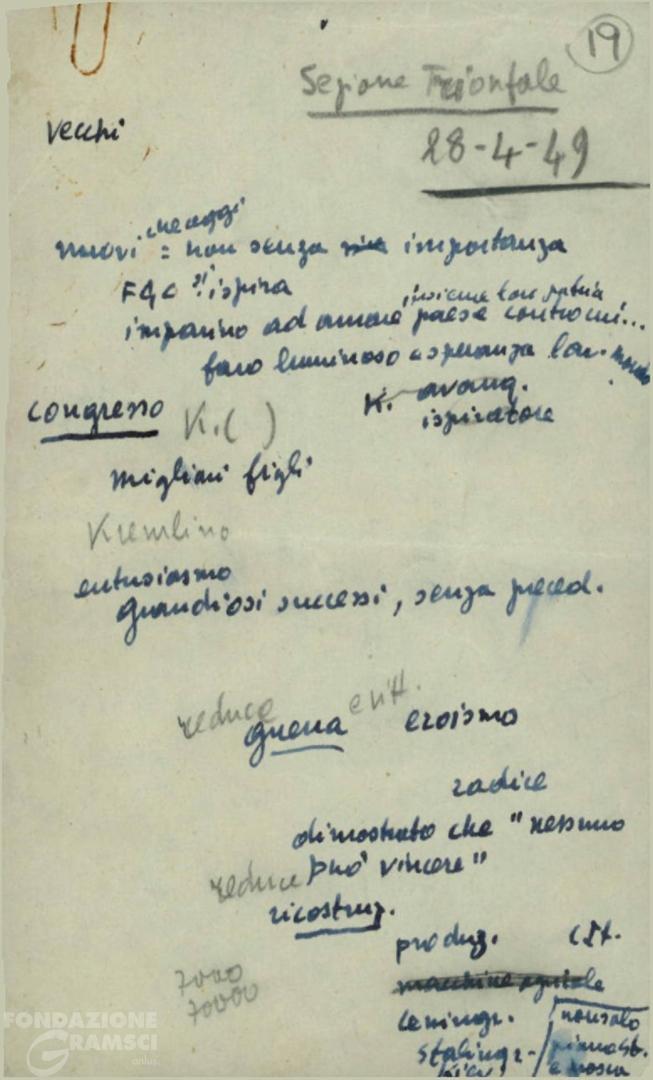 19
Sezione Trionfale
28-4-49
vecchi
che oggi
nuovi = non senza importanza
FGC ispira
insieme loro patria,
imparino ad amare paese contro cui...
faro luminoso esperanza lav. mondo
K. avang.
ispiratore
congresso K. ( )
migliori figli
Kremlino
entusiasmo
grandiosi successi, senza preced.
reduce
guerra eroismo
radice
dimostrato che "nessuno
reduce può vincere"
ricostruz.
produz. cit.
macchine agricole
7000
70000
Leningr. non solo
Stalingr.
FONDAZIONE
GRAMSCI
onlus